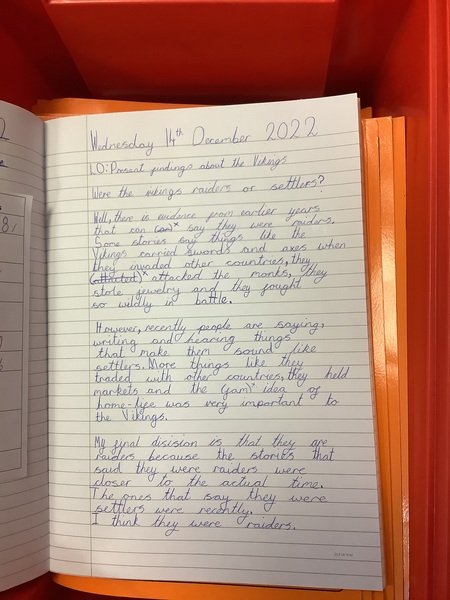 Wednesday 14th December 2022
LO: Present findings about the Vikings
Were the vikings raiders or settlers?
Well, there is evidence from earlier years
that can (can)* say they were raiders.
Some stories say things like the
Vikings carried swords and axes when
they invaded other countries, they
(attacted)* attacked the monks, they
stole jewelry and they fought
so wildly in battle.
However, recently people are saying,
writing and hearing things
that make them sound like
settlers. More things like they
traded with other countries, they held
markets and the idea of
home-life was very important to
the Vikings.
My final disision is that they are
raiders because the stories that
said they were raiders were
closer to the actual time.
The ones that say they were
settlers were recently.
I think they were raiders.
2
8